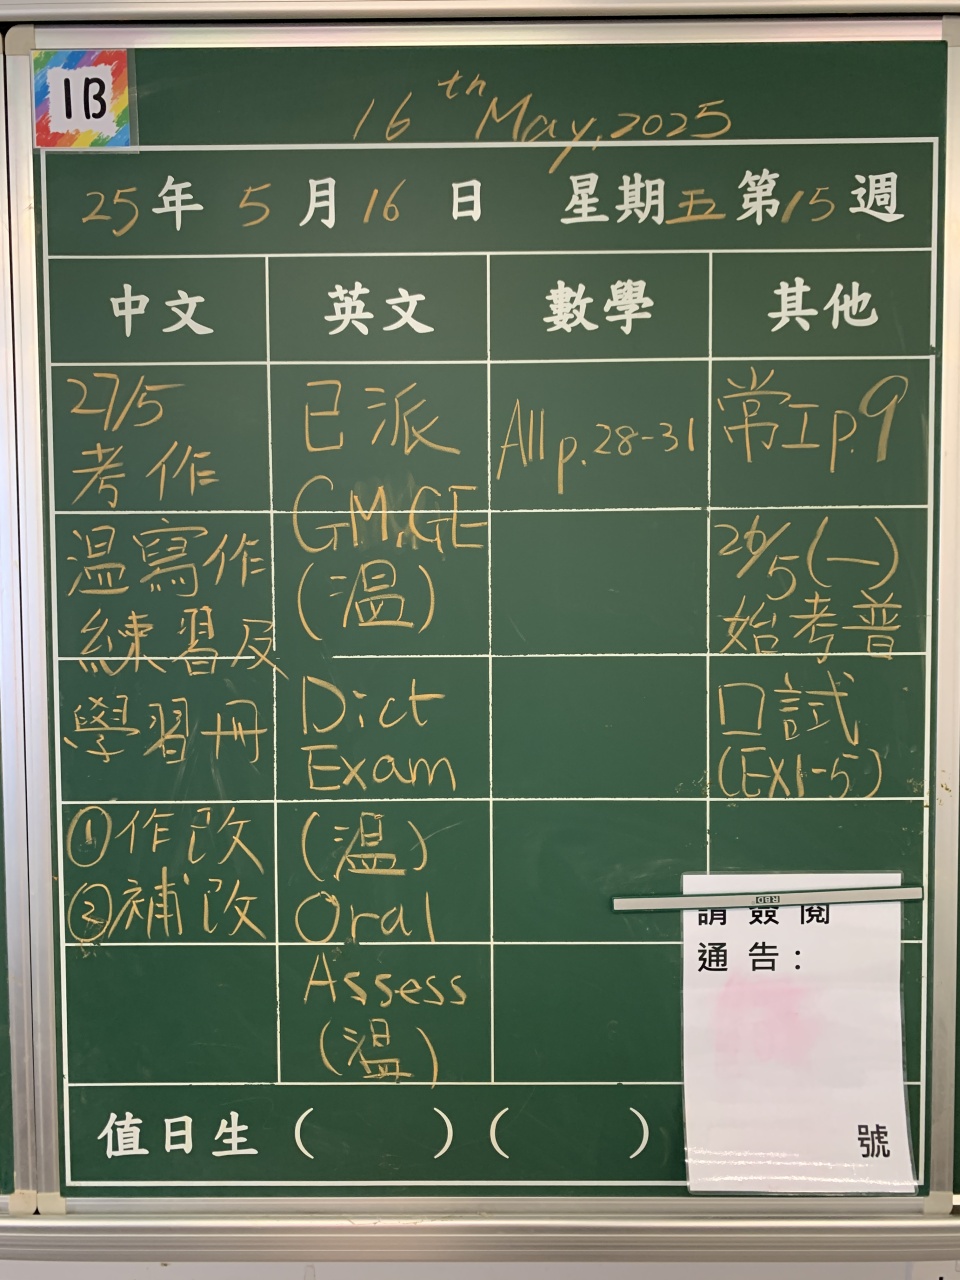 1B
16th May, 2025
25年 5月16日 星期五 第15週
中文
英文
數學
其他
27/5
考作
温寫作
練習及
學習冊
①作改
②補改
已派
GM, GE
(温)
Dict
Exam
(温)
Oral
Assess
(温)
All p.28-31
常工p.9
26/5(一)
始考普
口試
(EX1-5)
請簽閱
通告:
號
值日生 ( ) ( )